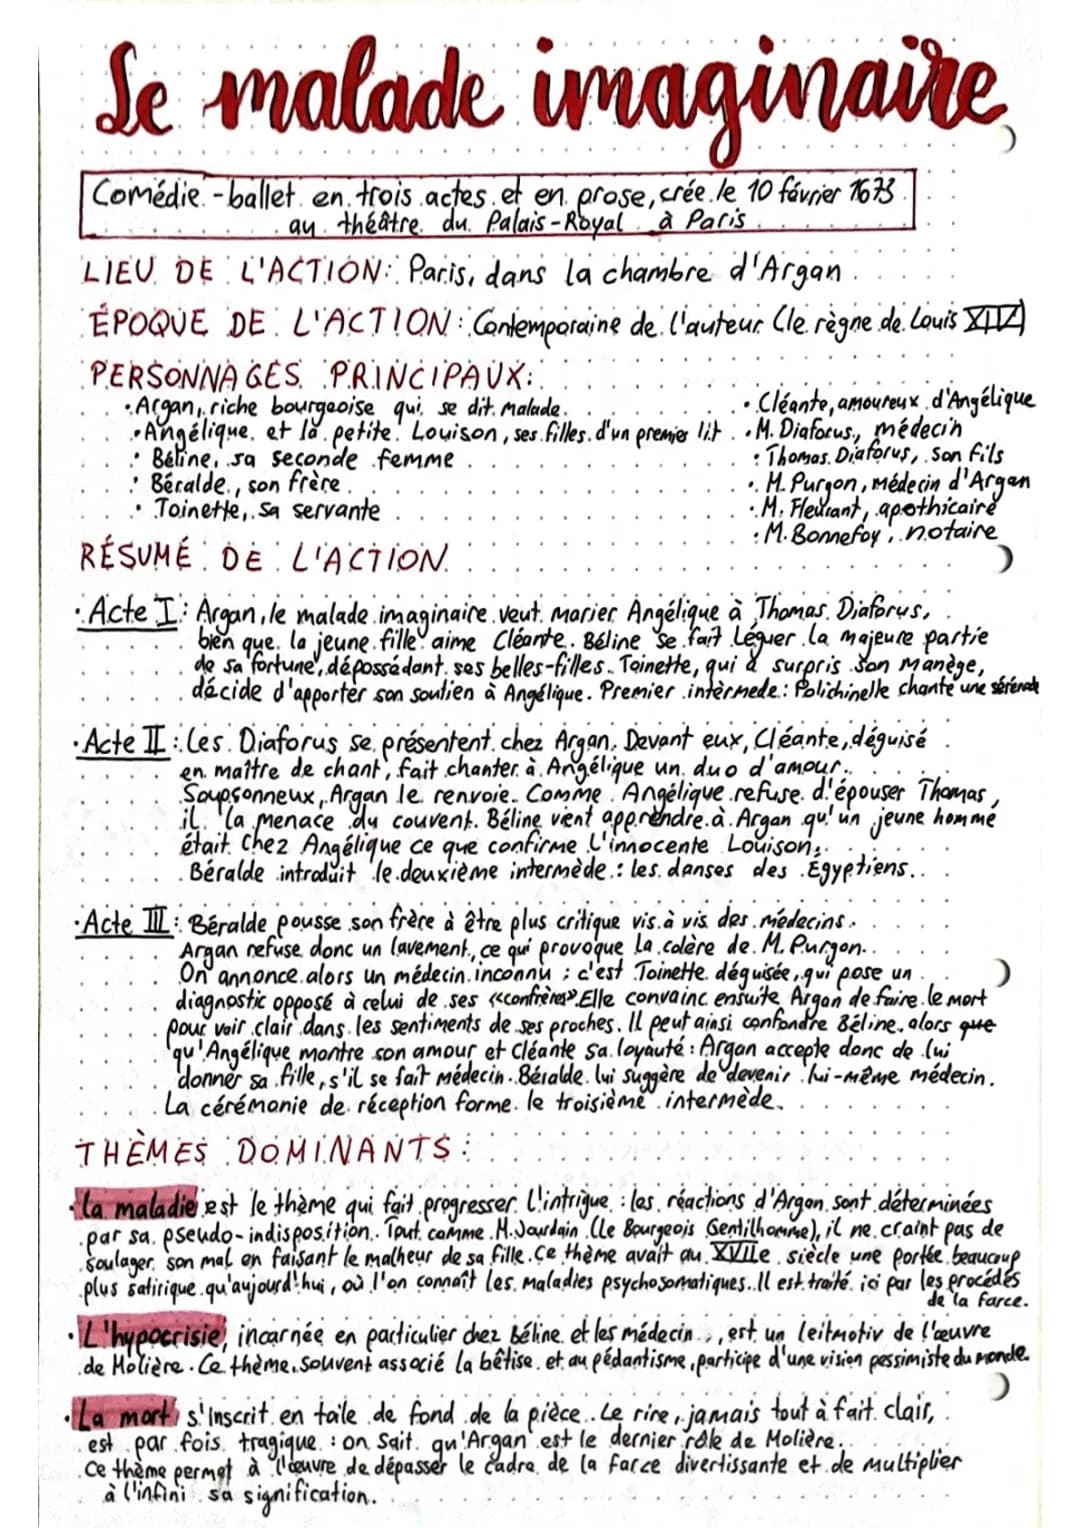 Le malade imaginaire
Comédie-ballet en trois actes et en prose, crée le 10 février 1673
au théâtre du Palais-Royal à Paris
LIEU DE L'ACTION: Paris, dans la chambre d'Argan
ÉPOQUE DE L'ACTION: Contemporaine de l'auteur (le règne de Louis XIV)
PERSONNAGES PRINCIPAUX:
• Argan, riche bourgeoise qui se dit malade.
• Angélique et la petite Louison, ses filles d'un premier lit
• Béline, sa seconde femme
• Béralde, son frère
• Toinette, sa servante
• Cléante, amoureux d'Angélique
• M. Diaforus, médecin
• Thomas Diaforus, son fils
• M. Purgon, médecin d'Argan
• M. Fleurant, apothicaire
• M. Bonnefoy, notaire
RÉSUMÉ DE L'ACTION
• Acte I: Argan, le malade imaginaire veut marier Angélique à Thomas Diaforus,
bien que la jeune fille aime Cléante. Béline se fait léguer la majeure partie
de sa fortune, dépossédant ses belles-filles. Toinette, qui a surpris son manège,
décide d'apporter son soutien à Angélique. Premier intèrmede: Polichinelle chante une sérénade
• Acte II: Les Diaforus se présentent chez Argan. Devant eux, Cléante, déguisé
en maître de chant, fait chanter à Angélique un duo d'amour.
Soupçonneux, Argan le renvoie. Comme Angélique refuse d'épouser Thomas,
il la menace du couvent. Béline vient apprendre à Argan qu'un jeune homme
était chez Angélique ce que confirme l'innocente Louison.
Béralde introduit le deuxième intermède: les danses des Égyptiens.
• Acte III: Béralde pousse son frère à être plus critique vis à vis des médecins.
Argan refuse donc un lavement, ce qui provoque la colère de M. Purgon.
On annonce alors un médecin inconnu: c'est Toinette déguisée, qui pose un
diagnostic opposé à celui de ses «confrères». Elle convainc ensuite Argan de faire le mort
pour voir clair dans les sentiments de ses proches. Il peut ainsi confondre Béline, alors que
qu'Angélique montre son amour et Cléante sa loyauté: Argan accepte donc de lui
donner sa fille, s'il se fait médecin. Béralde lui suggère de devenir lui-même médecin.
La cérémonie de réception forme le troisième intermède.
THÈMES DOMINANTS:
• La maladie est le thème qui fait progresser l'intrigue: les réactions d'Argan sont déterminées
par sa pseudo-indisposition. Tout comme M. Jourdain (Le Bourgeois Gentilhomme), il ne craint pas de
soulager son mal en faisant le malheur de sa fille. Ce thème avait au XVIIe siècle une portée beaucoup
plus satirique qu'aujourd'hui, où l'on connaît les maladies psychosomatiques. Il est traité ici par les procédés
de la farce.
• L'hypocrisie, incarnée en particulier chez Béline et les médecin, est un leitmotiv de l'œuvre
de Molière. Ce thème, souvent associé la bêtise et au pédantisme, participe d'une vision pessimiste du monde.
• La mort s'inscrit en toile de fond de la pièce. Le rire, jamais tout à fait clair,
est par fois tragique: on sait qu'Argan est le dernier rôle de Molière.
Ce thème permet à l'œuvre de dépasser le cadre de la farce divertissante et de multiplier
à l'infini sa signification.